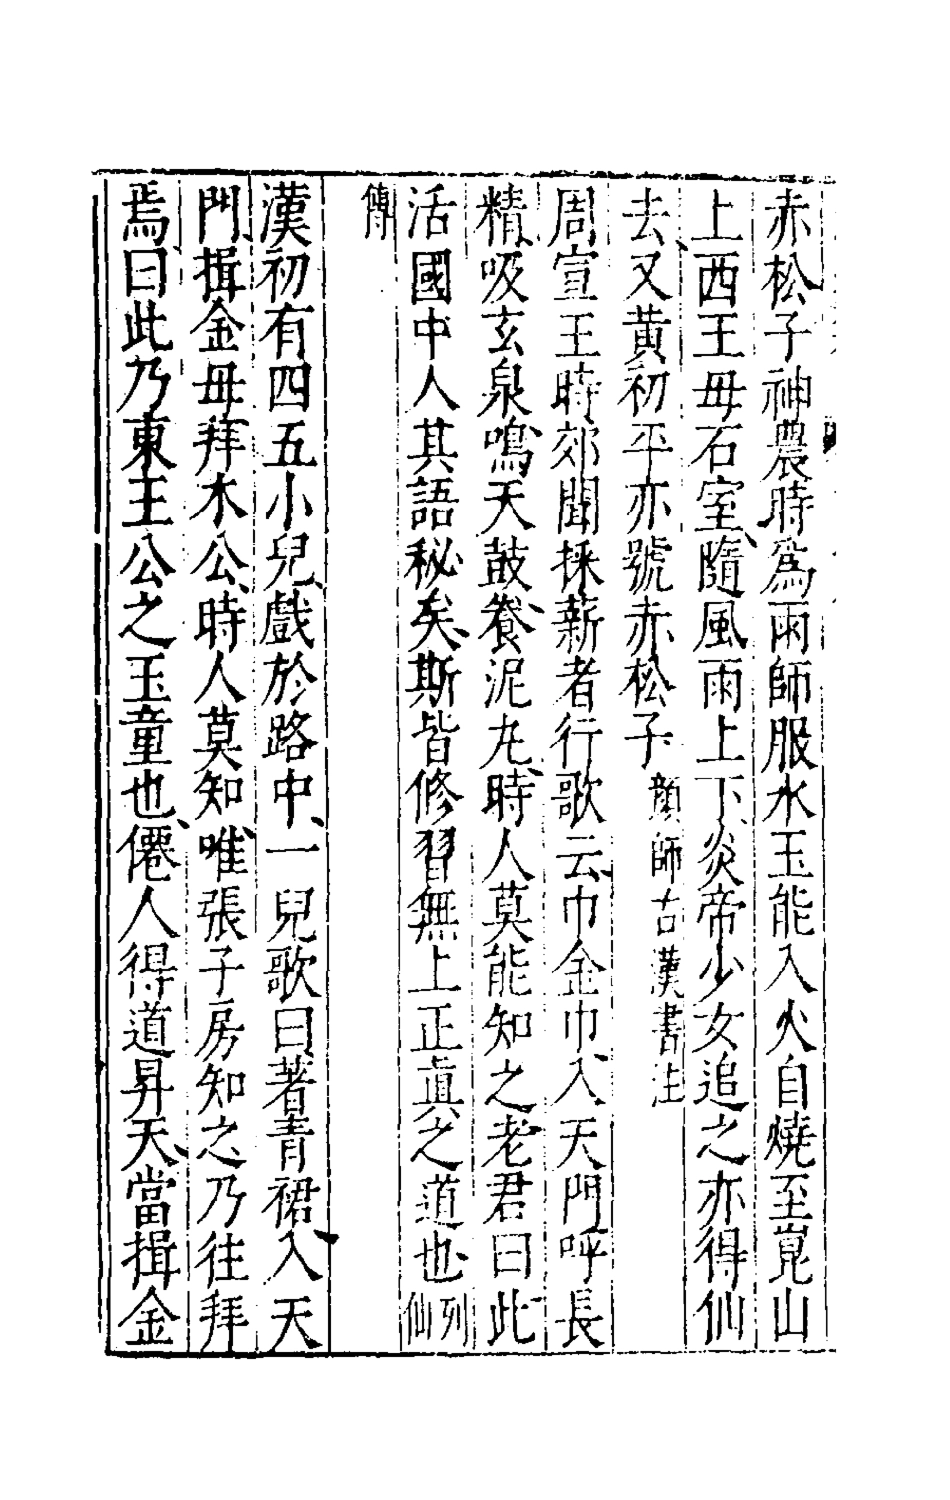 赤松子神農時爲雨師服水玉能入火自燒至崑山
上西王母石室、隨風雨上下、炎帝少女追之亦得仙
去、又黄初平亦號赤松子顔師古漢書注
周宣王時郊聞採薪者行歌云、巾金巾、入天門呼長
精、吸玄泉鳴天鼓養泥丸、時人莫能知之老君曰此
活國中人其語秘矣、斯皆修習無上正眞之道也列仙
傳
漢初有四五小兒、戲於路中、一兒歌曰著青裙、入天
門、揖金母拜木公、時人莫知唯張子房知之乃往拜
焉曰此乃東王公之玉童也、僊人得道昇天、當揖金